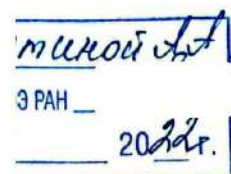 тиной А.А
Э РАН
2022г.